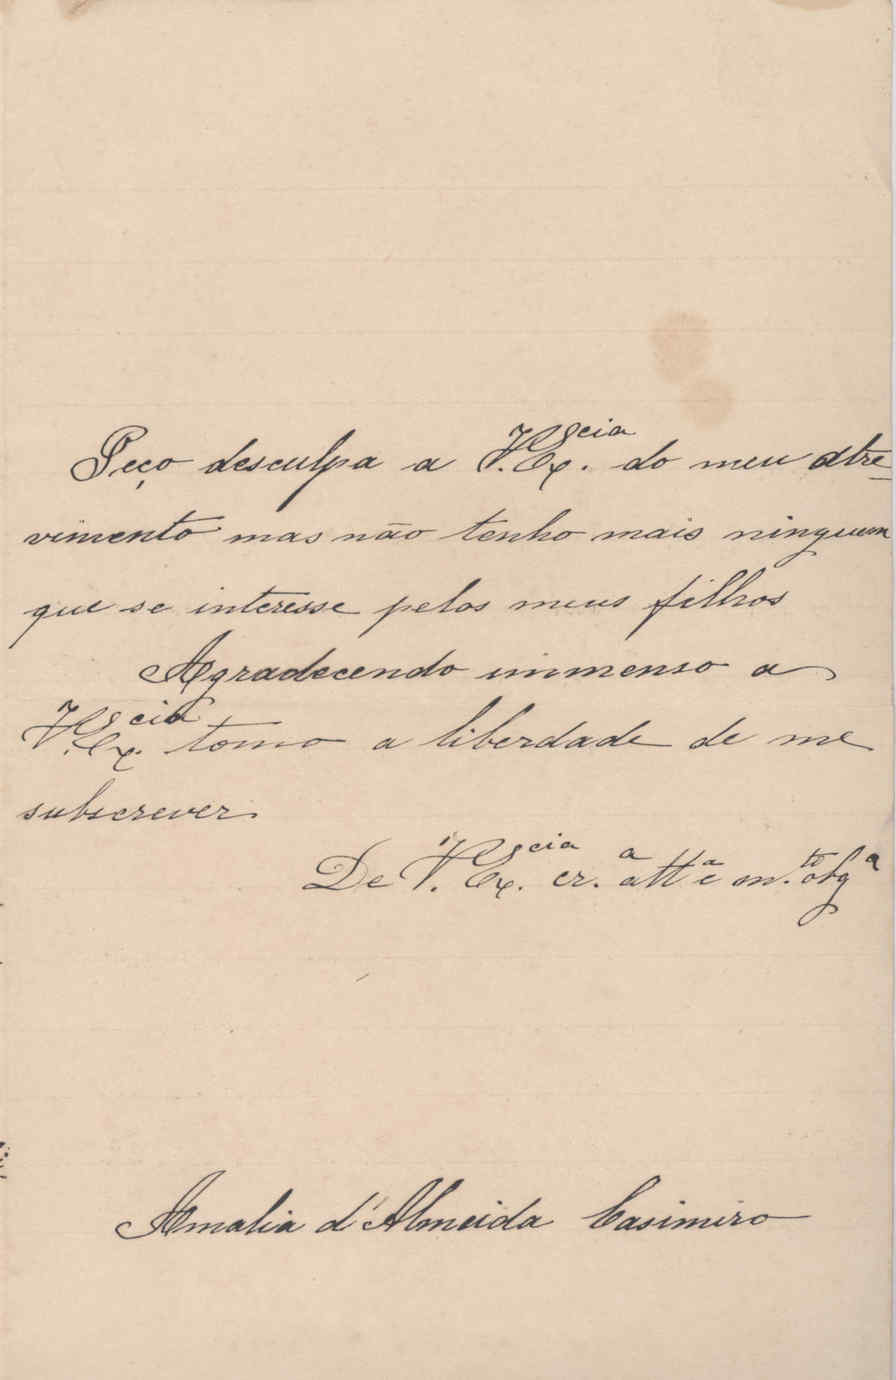 Peço desculpa a V. Ex.cia do meu atre-
vimento mas não tenho mais ninguem
que se interesse pelos meus filhos
Agradecendo immenso a
V. Ex.cia tomo a liberdade de me
subscrever.
De V. Ex.cia cr.a att.a e m.to obg.a
Amalia d'Almeida Casimiro